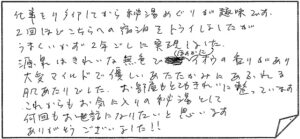 仕事をリタイアしてから秘湯めぐりが趣味です。
2回ほどこちらへの宿泊をトライしましたが
うまくいかず2年ごしに実現しました。
源泉はきれいな無色で ほのかに イオウの香りがあり
大変マイルドで優しいあたたかみにあふれる
肌あたりでした。お部屋もとてもきれいに整っています
これからもお気に入りの秘湯として
何回もお世話になりたいと思います
ありがとうございました!!